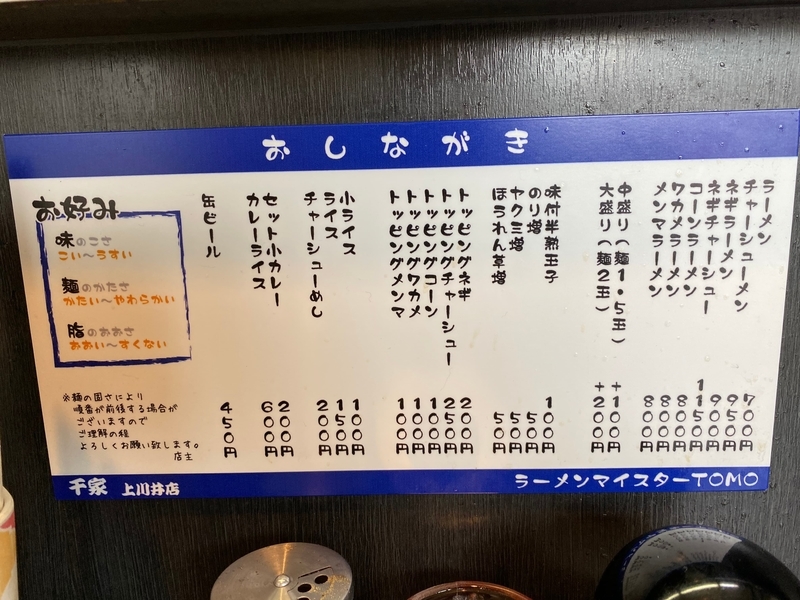 おしながき
ラーメン 700円
チャーシューメン 950円
ネギラーメン 900円
ネギチャーシュー 1150円
コーンラーメン 800円
ワカメラーメン 800円
メンマラーメン 800円
中盛り(麺1.5玉) +100円
大盛り(麺2玉) +200円
味付半熟玉子 100円
のり増 50円
ヤクミ増 50円
ほうれん草増 50円
トッピングネギ 200円
トッピングチャーシュー 250円
トッピングコーン 100円
トッピングワカメ 100円
トッピングメンマ 100円
小ライス 100円
ライス 150円
チャーシューめし 200円
セット小カレー 200円
カレーライス 600円
缶ビール 450円
お好み
味のこさ
こい〜うすい
麺のかたさ
かたい〜やわらかい
脂のおおさ
おおい〜すくない
※麺の固さにより
順番が前後する場合が
ございますので
ご理解の程
よろしくお願い致します。
店主
千家 上川井店
ラーメンマイスターTOMO